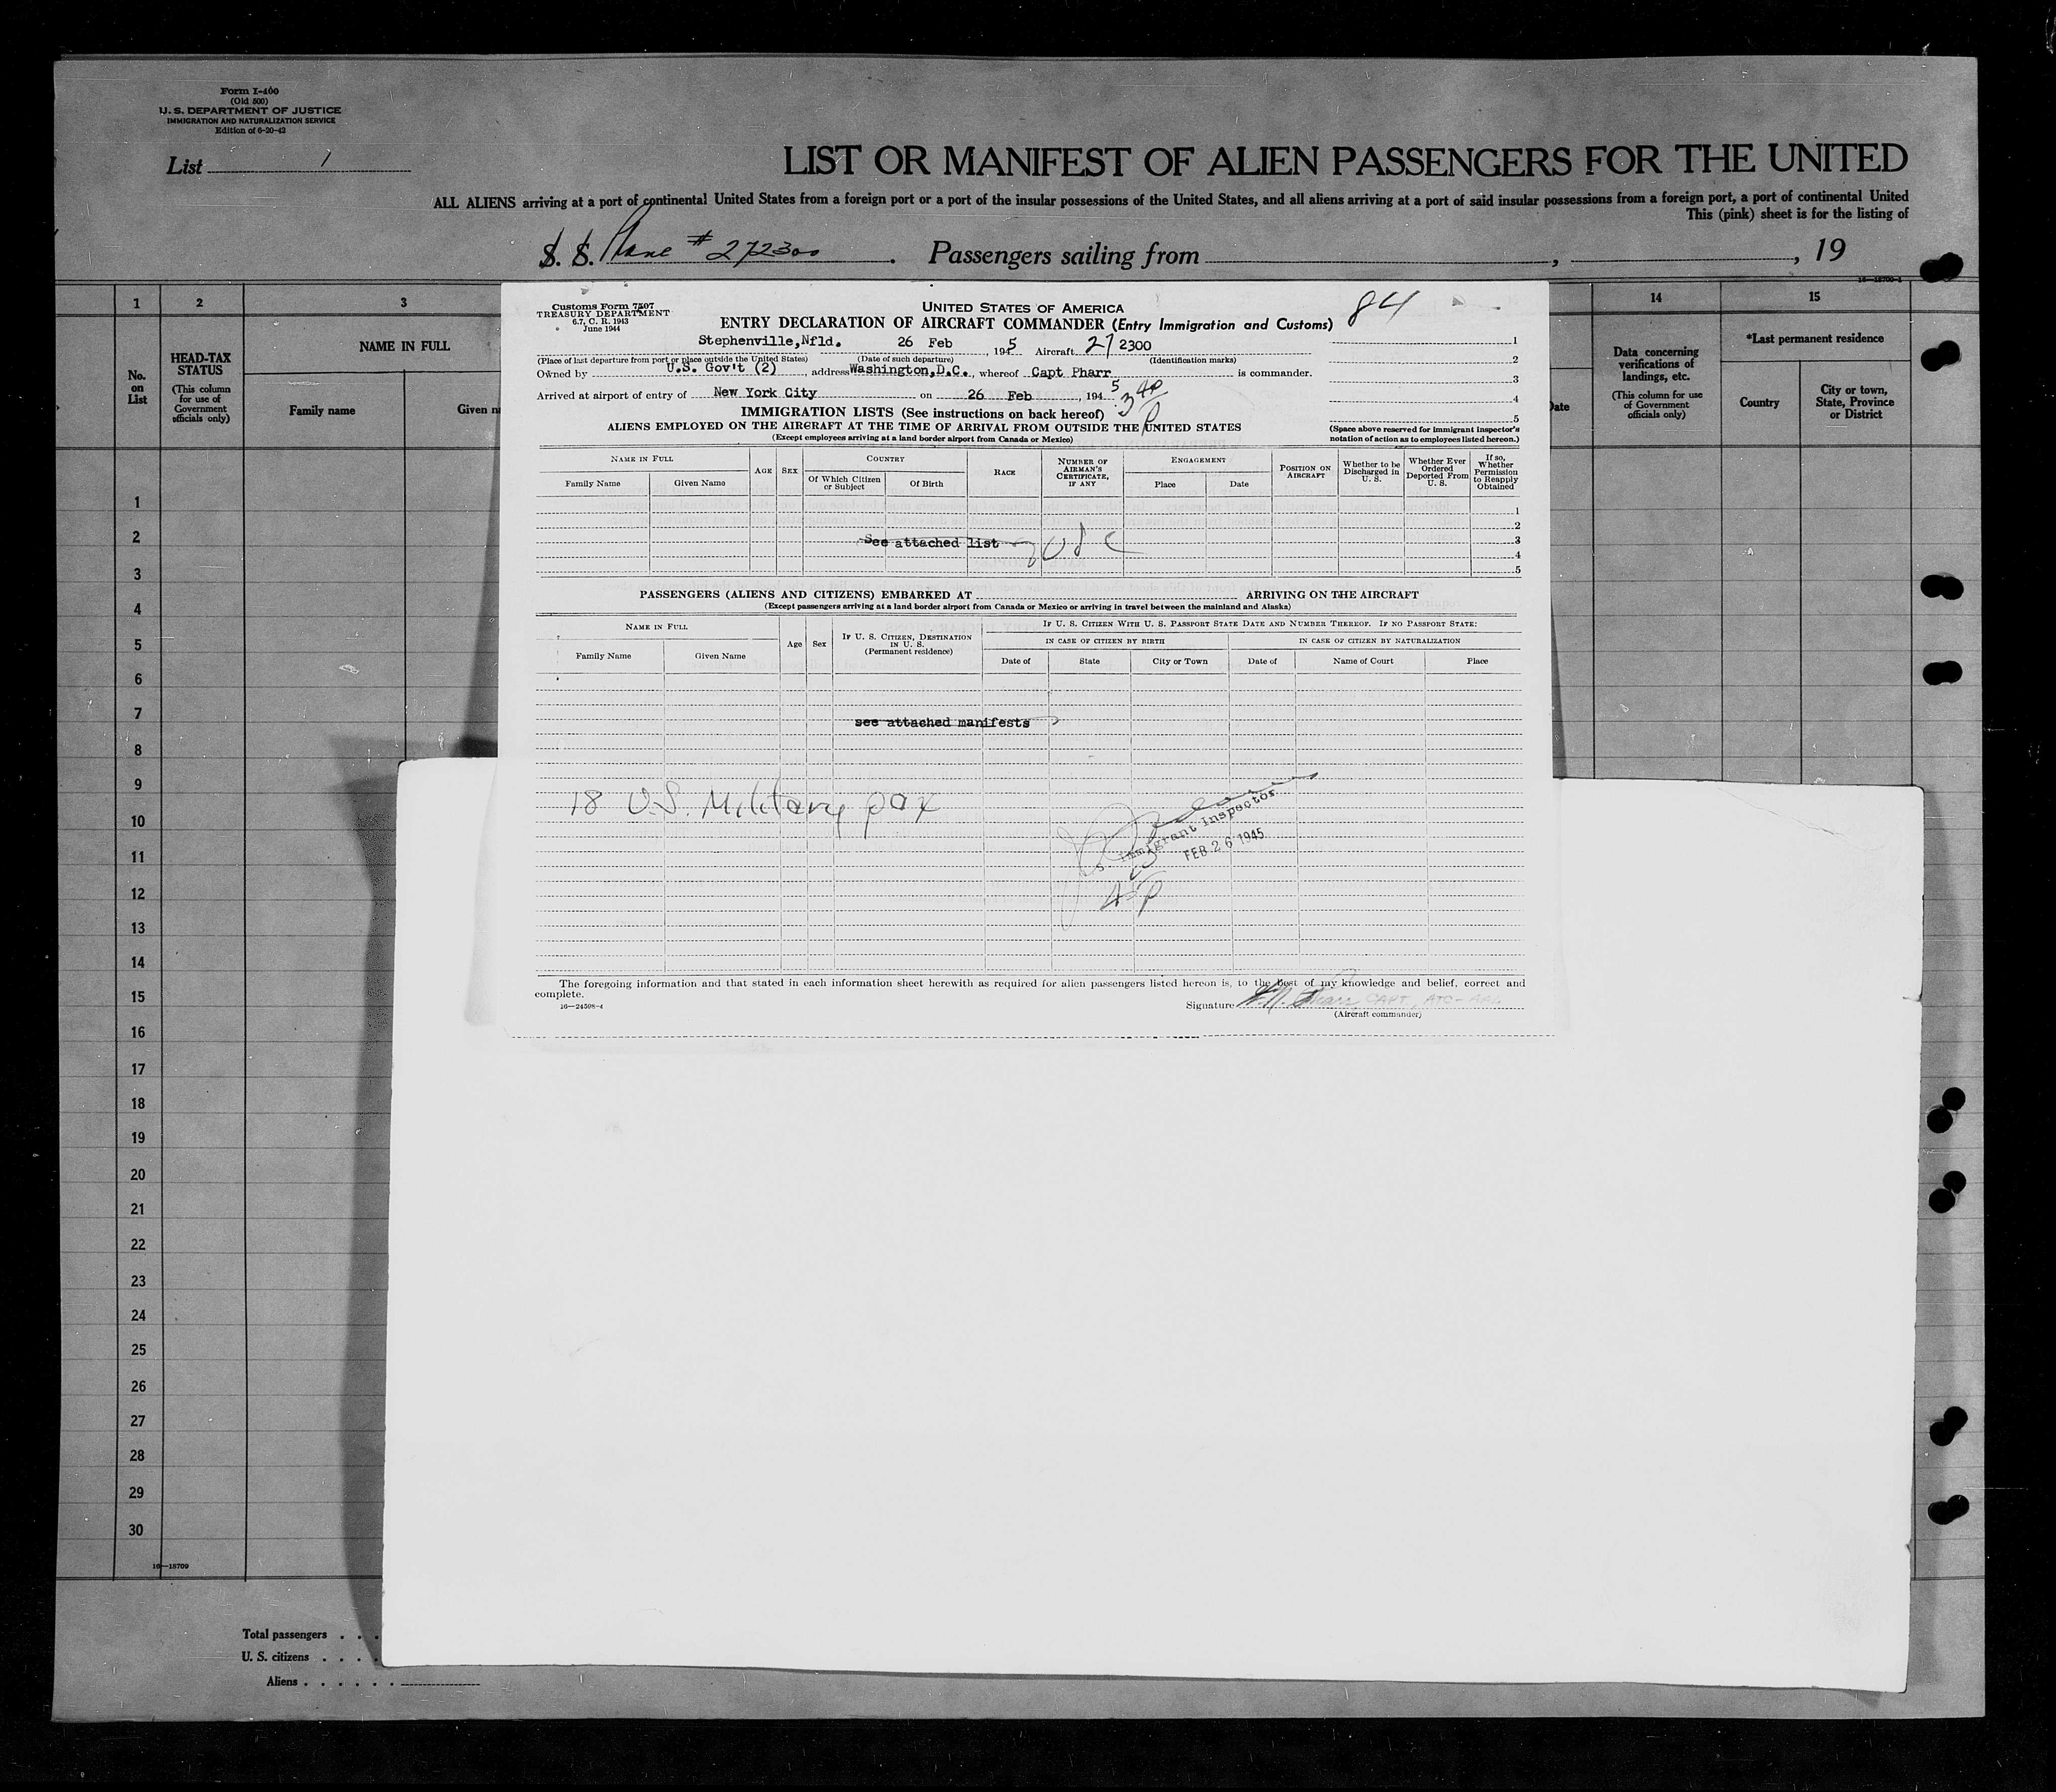 Form I-400
(Old 500)
U. S. DEPARTMENT OF JUSTICE
IMMIGRATION AND NATURALIZATION SERVICE
Edition of 6-20-42
List 1
LIST OR MANIFEST OF ALIEN PASSENGERS FOR THE UNITED
ALL ALIENS arriving at a port of continental United States from a foreign port or a port of the insular possessions of the United States, and all aliens arriving at a port of said insular possessions from a foreign port, a port of continental United
This (pink) sheet is for the listing of
S. S. Plane # 272300. Passengers sailing from , , 19
1 2 3 14 15
HEAD-TAX STATUS
(This column for use of Government officials only)
No. on List
NAME IN FULL
Family name
Given n
Date
Data concerning verifications of landings, etc.
(This column for use of Government officials only)
*Last permanent residence
Country
City or town, State, Province or District
Customs Form 7507
TREASURY DEPARTMENT
6.7, C. R. 1943
June 1944
UNITED STATES OF AMERICA
84
ENTRY DECLARATION OF AIRCRAFT COMMANDER (Entry Immigration and Customs)
Stephenville,Nfld. 26 Feb , 1945 Aircraft 27 2300
(Place of last departure from port or place outside the United States) (Date of such departure) (Identification marks)
Owned by U.S. Gov't (2) , address Washington,D.C., whereof Capt Pharr is commander.
Arrived at airport of entry of New York City on 26 Feb , 1945
IMMIGRATION LISTS (See instructions on back hereof)
ALIENS EMPLOYED ON THE AIRCRAFT AT THE TIME OF ARRIVAL FROM OUTSIDE THE UNITED STATES
(Except employees arriving at a land border airport from Canada or Mexico)
1
2
3
4
5
(Space above reserved for immigrant inspector's notation of action as to employees listed hereon.)
NAME IN FULL
Family Name
Given Name
AGE
SEX
COUNTRY
Of Which Citizen or Subject
Of Birth
RACE
NUMBER OF AIRMAN'S CERTIFICATE, IF ANY
ENGAGEMENT
Place
Date
POSITION ON AIRCRAFT
Whether to be Discharged in U. S.
Whether Ever Ordered Deported From U. S.
If so, Whether Permission to Reapply Obtained
1
2
See attached list
3
4
5
PASSENGERS (ALIENS AND CITIZENS) EMBARKED AT ARRIVING ON THE AIRCRAFT
(Except passengers arriving at a land border airport from Canada or Mexico or arriving in travel between the mainland and Alaska)
NAME IN FULL
Family Name
Given Name
Age
Sex
IF U. S. CITIZEN, DESTINATION IN U. S.
(Permanent residence)
IF U. S. CITIZEN WITH U. S. PASSPORT STATE DATE AND NUMBER THEREOF. IF NO PASSPORT STATE:
IN CASE OF CITIZEN BY BIRTH
IN CASE OF CITIZEN BY NATURALIZATION
Date of
State
City or Town
Date of
Name of Court
Place
see attached manifests
18 U.S. Military pax
Immigrant Inspector
FEB 26 1945
The foregoing information and that stated in each information sheet herewith as required for alien passengers listed hereon is, to the best of my knowledge and belief, correct and
complete.
16—24598-4
Signature Pharr CAPT., ATC-
(Aircraft commander)
1
2
3
4
5
6
7
8
9
10
11
12
13
14
15
16
17
18
19
20
21
22
23
24
25
26
27
28
29
30
16—18709
Total passengers
U. S. citizens
Aliens